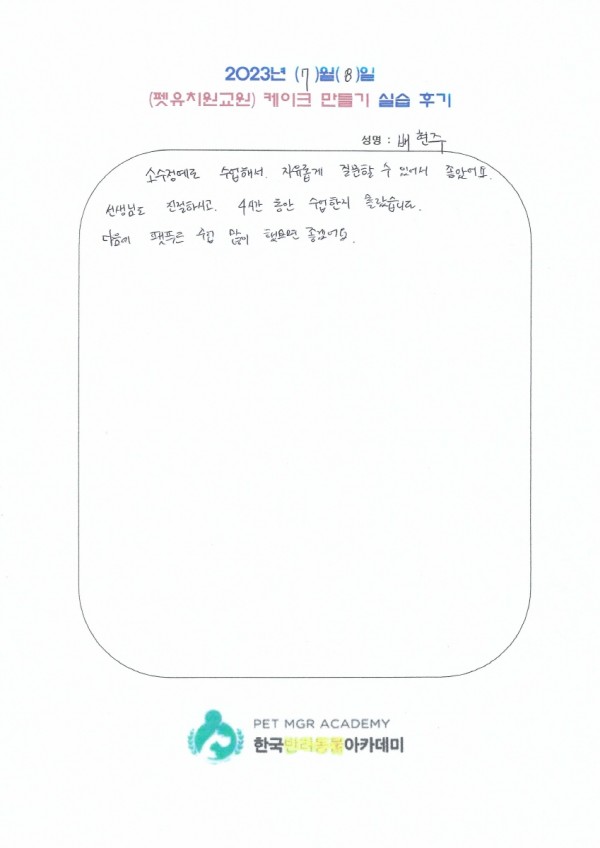 2023년 (7)월(8)일
(펫유치원교원) 케이크 만들기 실습 후기
성명 : 배현주
소수정예로 수업해서 자유롭게 질문할 수 있어서 좋았어요.
선생님도 친절하시고. 4시간 동안 수업한지 몰랐습니다.
다음에 펫푸드 수업 많이 했으면 좋겠어요.
PET MGR ACADEMY
한국반려동물아카데미